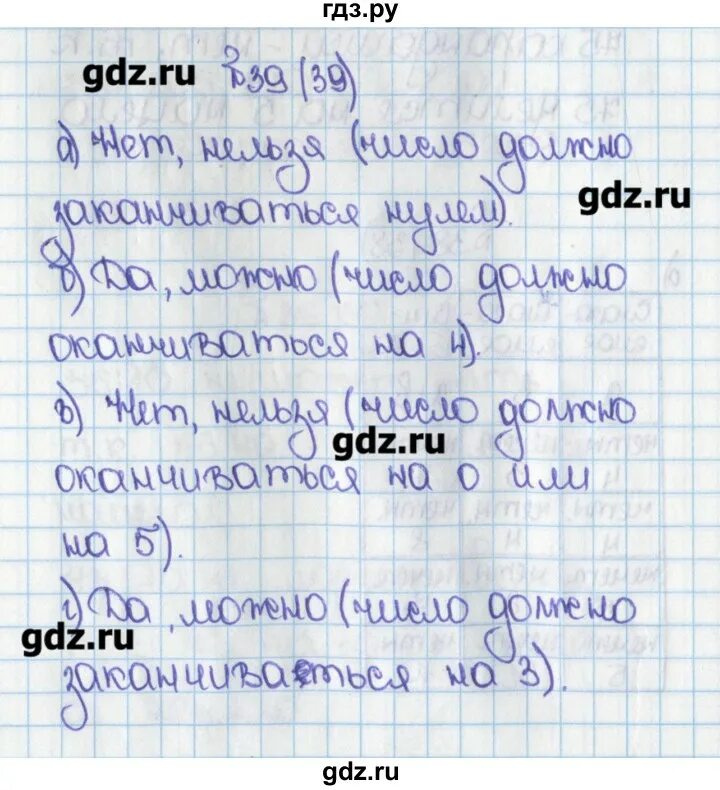 гдз.ру
gdz.ru
№39 (39)
а) Нет, нельзя (число должно
gdz.ru
заканчиваться нулем).
б) Да, можно (число должно
оканчиваться на 4).
в) Нет, нельзя (число должно
gdz.ru
оканчиваться на 0 или
на 5).
г) Да, можно (число должно
gdz.ru
заканчиваться на 3).
gdz.ru